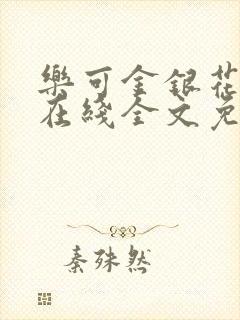 樂可金銀花
在綫全文免
秦殊然